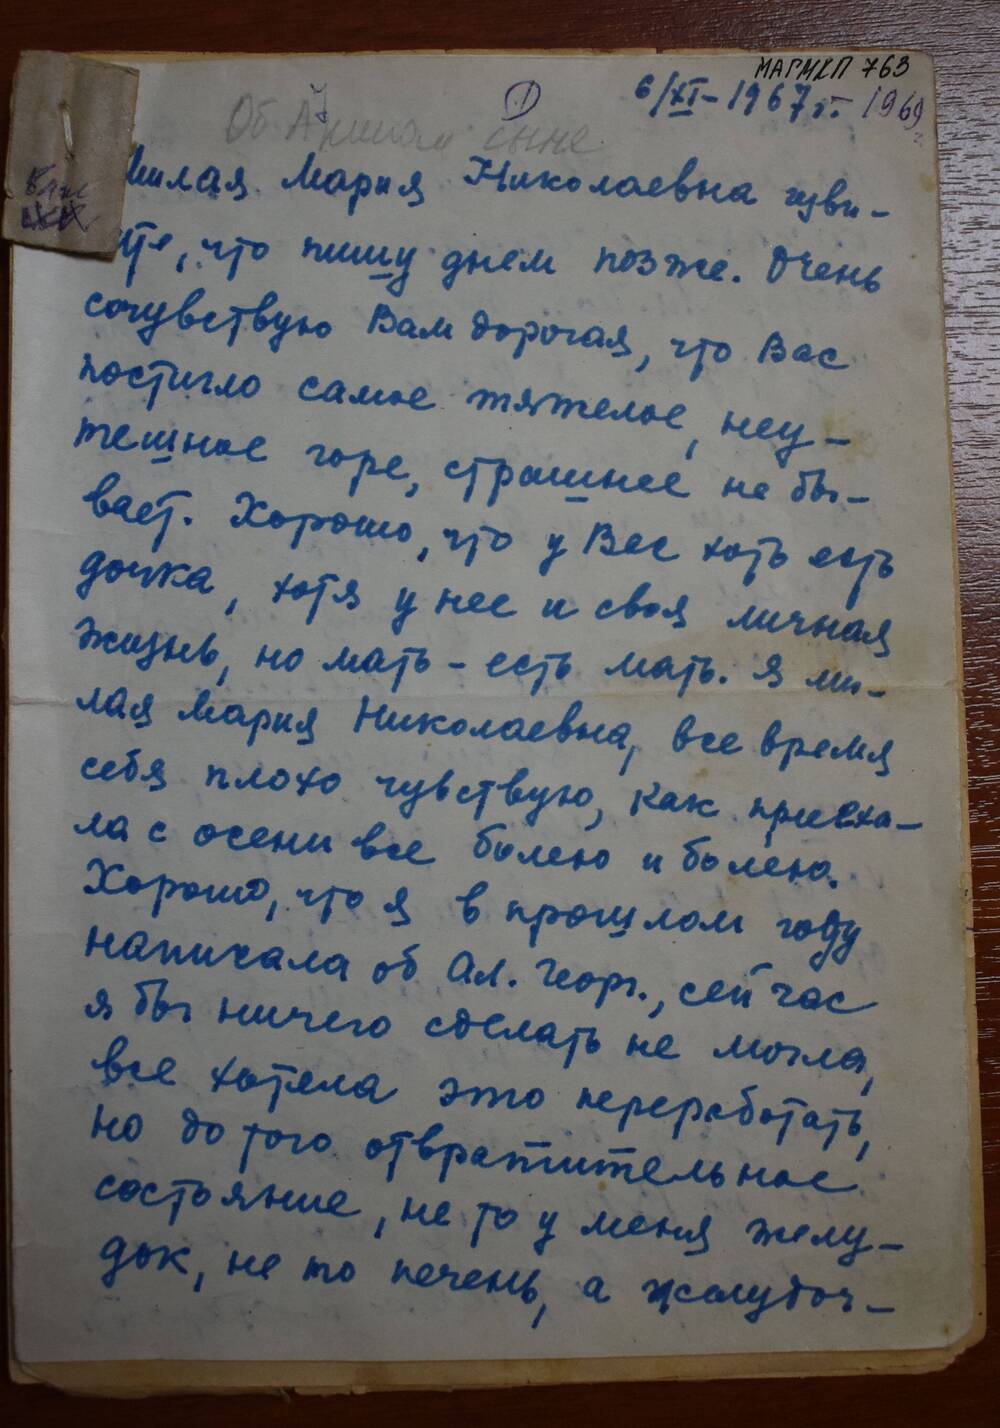 МАГМКП 763
① 6/XI-1967 г. 1969 г.
Об сыне
Милая Мария Николаевна изви-
ите, что пишу днем позже. Очень
сочувствую Вам дорогая, что Вас
постигло самое тяжелое, неу-
тешное горе, страшнее не бы-
вает. Хорошо, что у Вас хоть есть
дочка, хотя у нее и своя личная
жизнь, но мать - есть мать. Я ми-
лая Мария Николаевна, все время
себя плохо чувствую, как приеха-
ла с осени все болею и болею.
Хорошо, что я в прошлом году
написала об Ал. Георг., сейчас
я бы ничего сделать не могла,
все хотела это переработать,
но до того отвратительное
состояние, не то у меня желу-
док, не то печень, а желудоч-